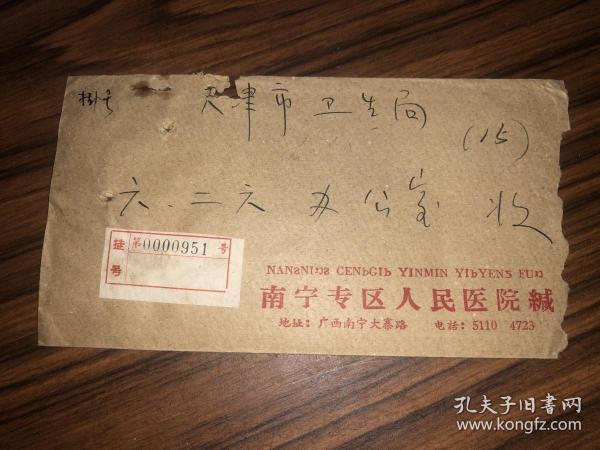 挂号
天津市卫生局
(15)
六.二六办公室 收
挂号 第0000951号
NANƨNIŊƨ CENЬGIЬ YINMIN YIЬYENƽ FUŊ
南宁专区人民医院缄
地址：广西南宁大寨路 电话：5110 4723
孔夫子旧书网
www.kongfz.com